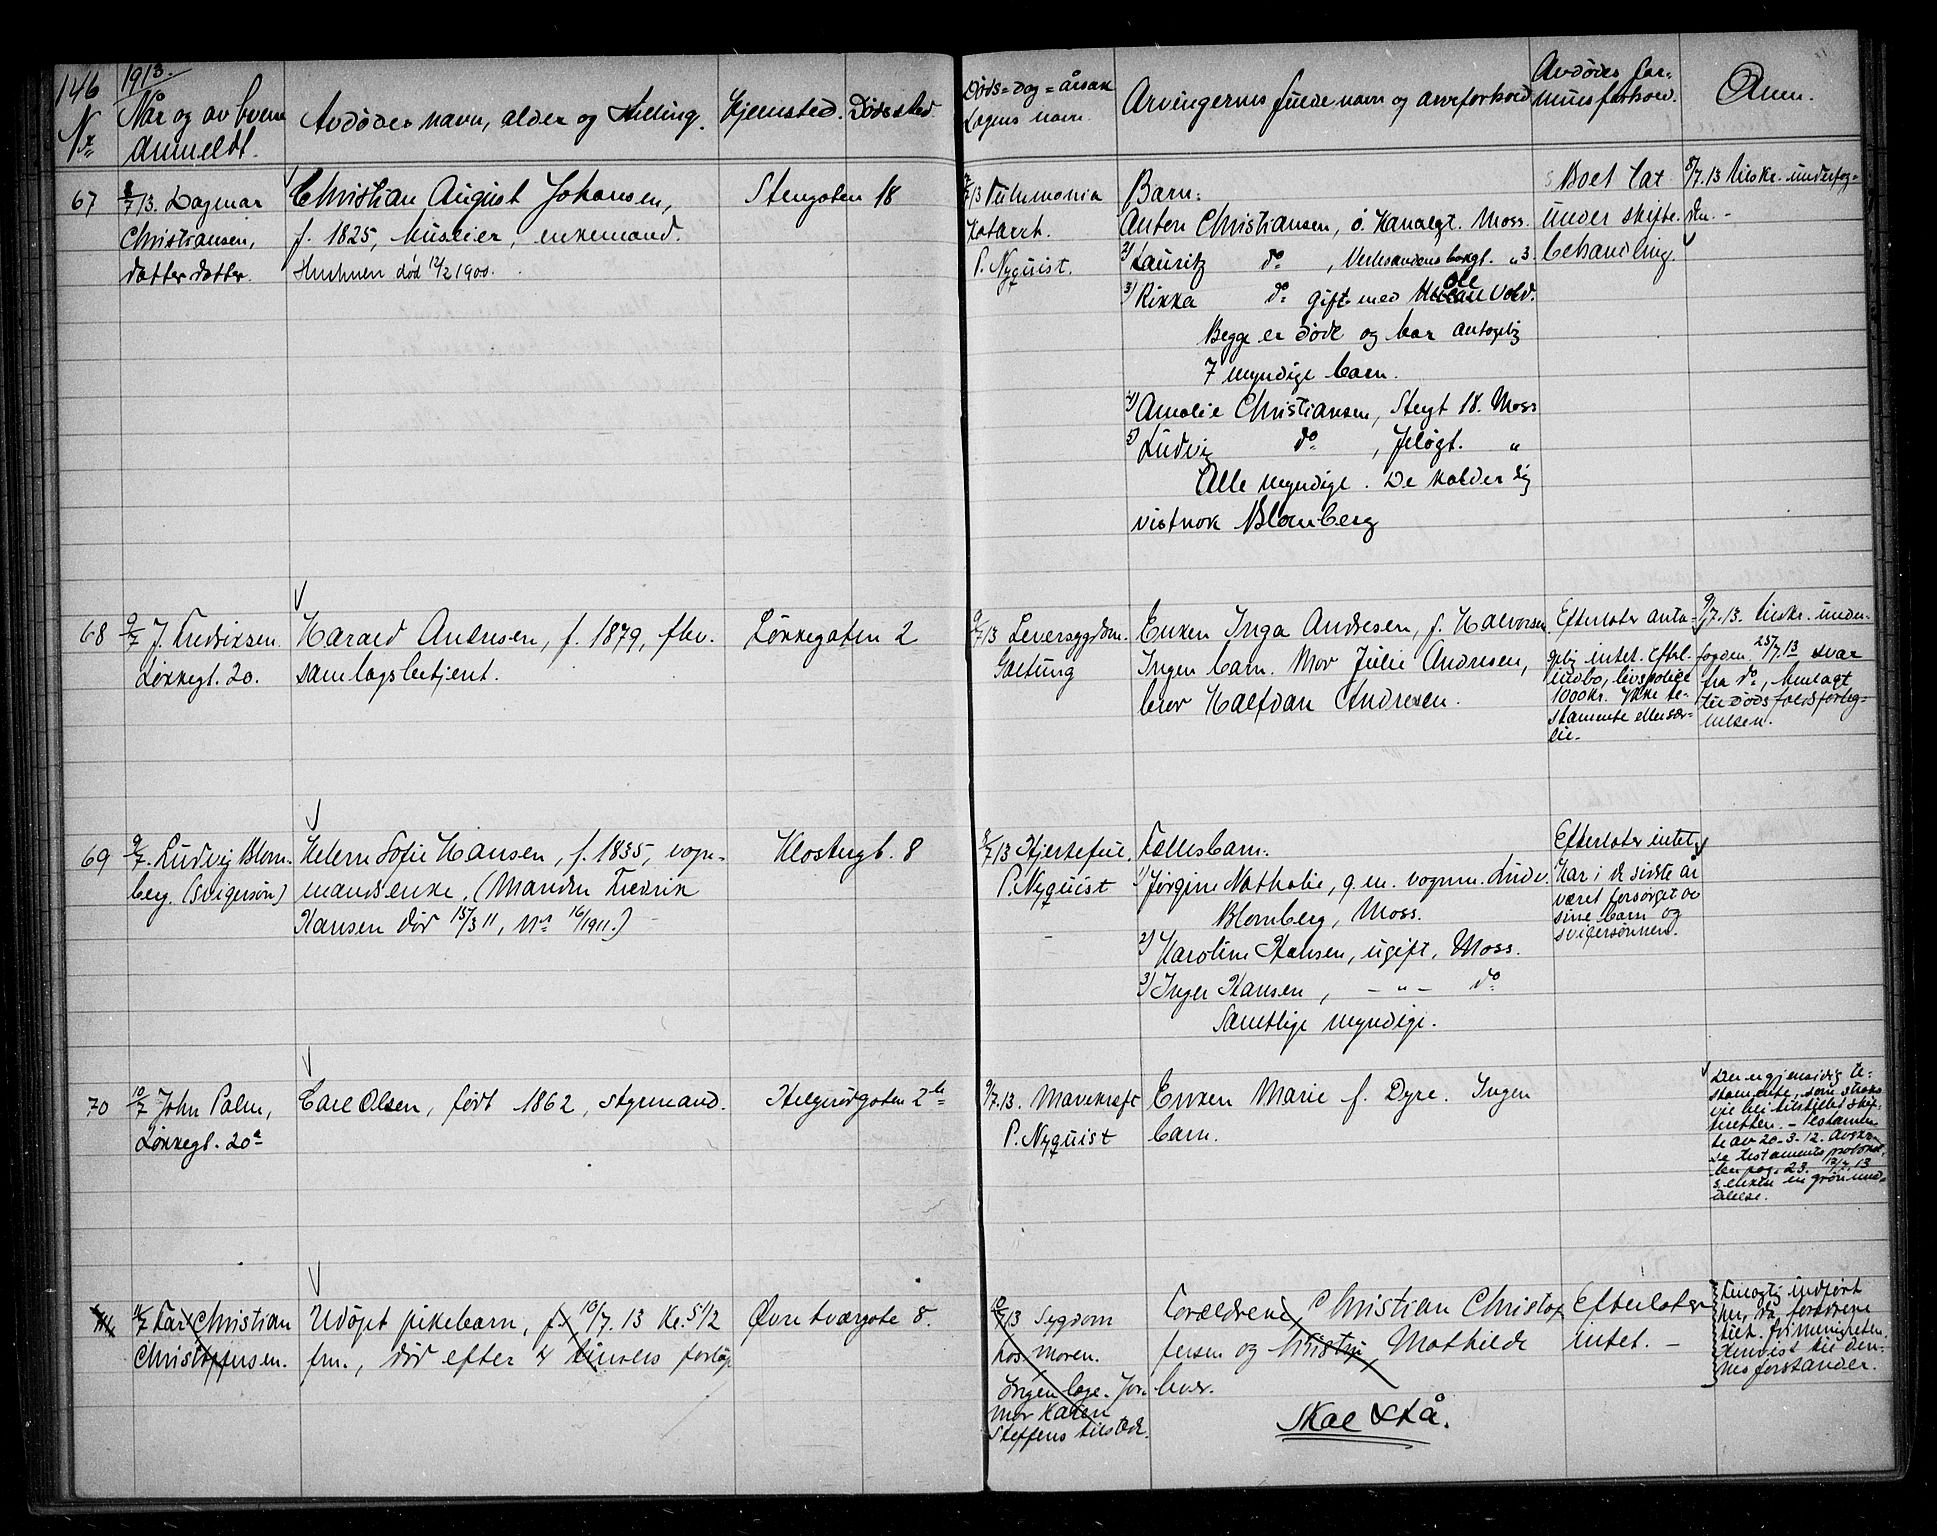 146
1913.
Nr
Når og av hvem
anmeldt.
Avdødes navn, alder og stilling.
Hjemsted.
Dødssted
Døds-dag-årsak
Lægens navn.
Arvingernes fulde navn og arveforhold
Avdødes for-
muesforhold.
Anm.
67
8/7 13. Dagmar
Christiansen,
datterdatter.
Christian August Johansen,
f. 1825, huseier, enkemand.
Hustruen død 12/2 1900.
Stengaten 18
/7 13
Katarrh.
P. Nyquist.
Barn:
Anton Christiansen, ö. Kanalgt. Moss.
2) Lauritz do, Verksandensbakgt. „ 3.
3) Rikka do gift med Ole Vold.
Begge er døde og har antagelig
7 myndige barn.
4) Amalie Christiansen, Stengt 18. Moss
5) Ludvig do, Jeløgt. „
Alle myndige. De kalder sig
vistnok Blomberg
Boet tat
under skifte-
behandling.
8/7.13 tilskr. underfog-
den.-
68
9/7 J. Fredriksen
Løkkegt. 20.
Harald Andresen, f. 1879, fhv.
samlagsbetjent.
Løkkegaten 2
9/7 13 Leversygdom.
Galtung
Enken Inga Andresen, f. Halvorsen
Ingen barn. Mor Julie Andresen,
bror Halfdan Andresen.
Efterlater anta-
gelig intet. Eftl.
indbo, livspolice
1000 kr. Ikke te-
stamente eller sær-
eie.
9/7.13. tilskr. under-
fogden. 25/7 13 svar
fra do, henlagt
til dødsfaldsforteg-
nelsen.
69
9/7. Ludvig Blom-
berg. (svigersøn)
Helene Sofie Hansen, f. 1835, vogn-
mandsenke. (Manden Fredrik
Hansen død 15/3 11, nr 16/1911.)
Klostergt. 8
8/7 13 Hjertefeil.
P. Nyquist
Fællesbarn.
1) Jørgine Nathalie, g. m. vognm. Ludv.
Blomberg, Moss.
2) Karoline Hansen, ugift, Moss.
3) Inger Hansen, - „ - do
Samtlige myndige.
Efterlater intet
Har i de sidste år
været forsørget av
sine barn og
svigersønnen.
70
10/7 John Palm,
Løkkegt. 20a
Carl Olsen, født 1862, styrmand.
Helgerødgaten 2b
9/7.13. Mavekræft
P. Nyquist
Enken Marie f. Dyre. Ingen
barn.
Der er gjensidig te-
stamente, som skal
vil bli tilstillet skif-
teretten. - Testamen-
te av 20-3-12. Avskr.
se testamentsprotokol-
len pag. 23. 12/7.13
s. enken en grøn med-
delelse.
11/7 Far Christian
Christoffersen.
Udøpt pikebarn, f. 10/7. 13 kl. 5 1/2
fm., død efter 4 timers forløp
Øvre tværgate 8.
10/7 13 Sygdom
hos moren.
Ingen læge. Jor-
mor Karen
Steffens tilstede.
Forældrene Christian Christof-
fersen og Mathilde
Skal utå.
Efterlater
intet. -
Feilagtig indført
her, da forældrene
tilh. frimenigheten.
Henvist til den-
nes forstander.